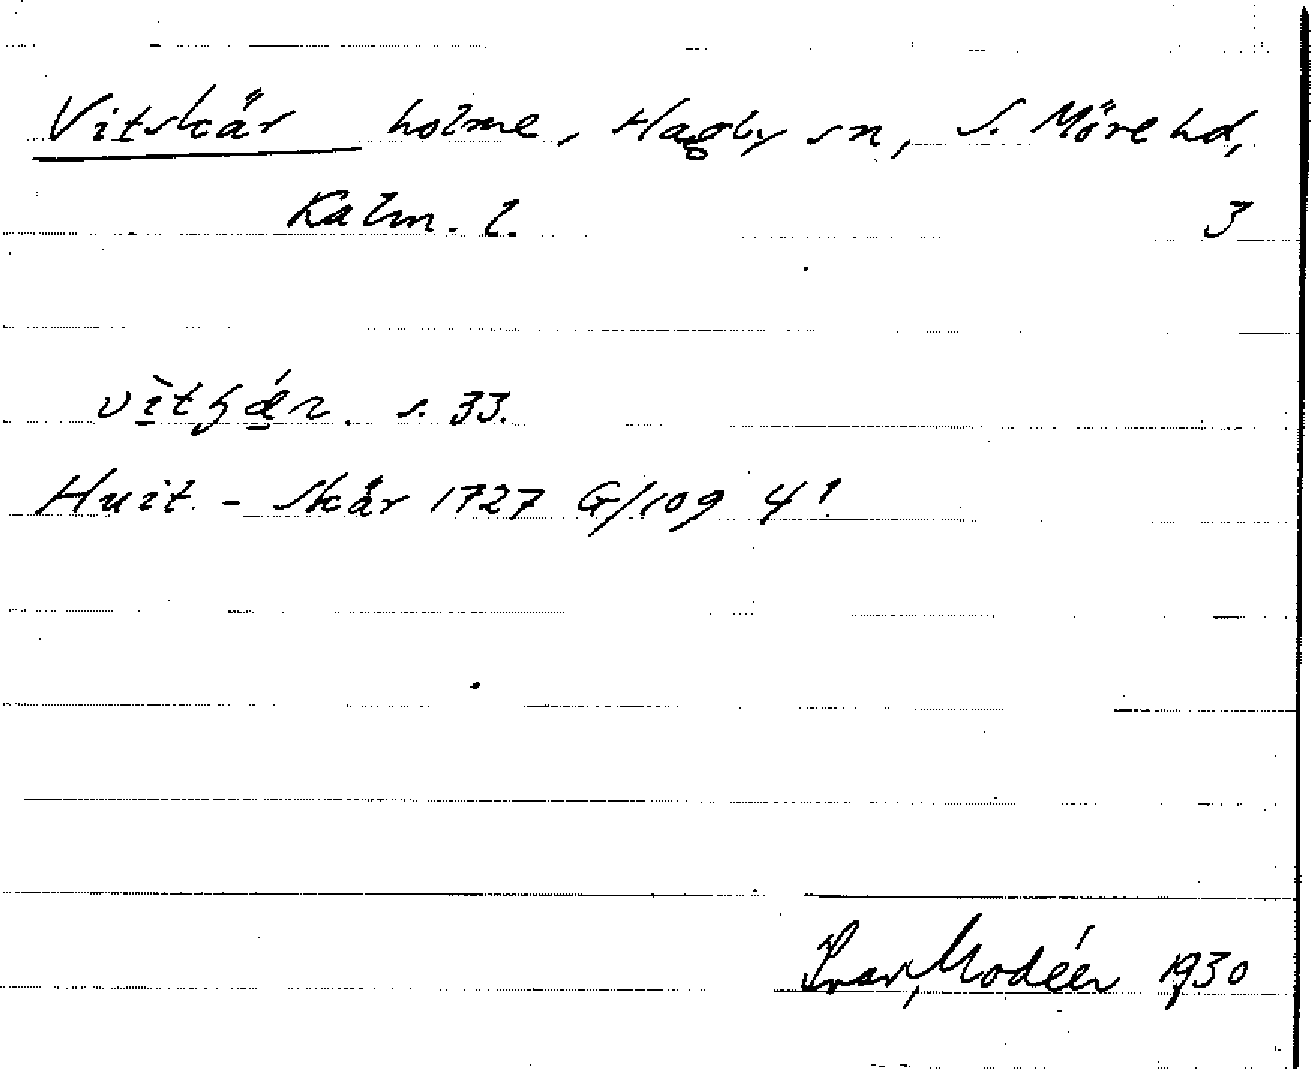 Vitskär holme, Hagby sn, S. Möre hd,
Kalm. l. 3
s. 33.
Huit-skär 1727 G/109 4¹
Ivar Modéer 1930